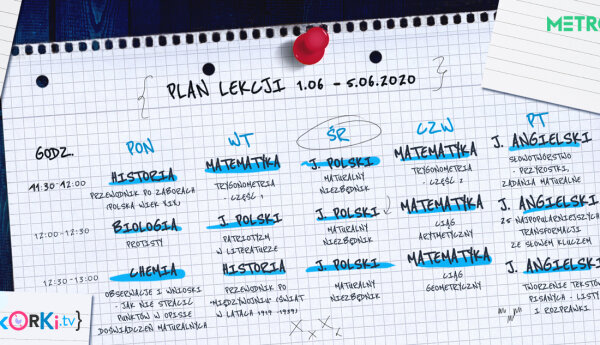 METR
{ PLAN LEKCJI 1.06 – 5.06.2020 }
GODZ. PON WT ŚR CZW PT
11:30-12:00
HISTORIA
PRZEWODNIK PO ZABORACH
(POLSKA WIEK XIX)
MATEMATYKA
TRYGONOMETRIA
- CZĘŚĆ 1
J. POLSKI
MATURALNY
NIEZBĘDNIK
MATEMATYKA
TRYGONOMETRIA
- CZĘŚĆ 2
J. ANGIELSKI
SŁOWOTWÓRSTWO
- PRZYROSTKI,
ZADANIA MATURALNE
12:00-12:30
BIOLOGIA
PROTISTY
J. POLSKI
PATRIOTYZM
W LITERATURZE
J. POLSKI
MATURALNY
NIEZBĘDNIK
MATEMATYKA
CIĄG
ARYTMETYCZNY
J. ANGIELSKI
25 NAJPOPULARNIEJSZYCH
TRANSFORMACJI
ZE SŁOWEM KLUCZEM
12:30-13:00
CHEMIA
OBSERWACJE I WNIOSKI
- JAK NIE STRACIĆ
PUNKTÓW W OPISIE
DOŚWIADCZEŃ MATURALNYCH
HISTORIA
PRZEWODNIK PO
"MIĘDZYWOJNIU" (ŚWIAT
W LATACH 1919-1939)
J. POLSKI
MATURALNY
NIEZBĘDNIK
MATEMATYKA
CIĄG
GEOMETRYCZNY
J. ANGIELSKI
TWORZENIE TEKSTÓW
PISANYCH - LISTY
I ROZPRAWKI
KORKI.tv}